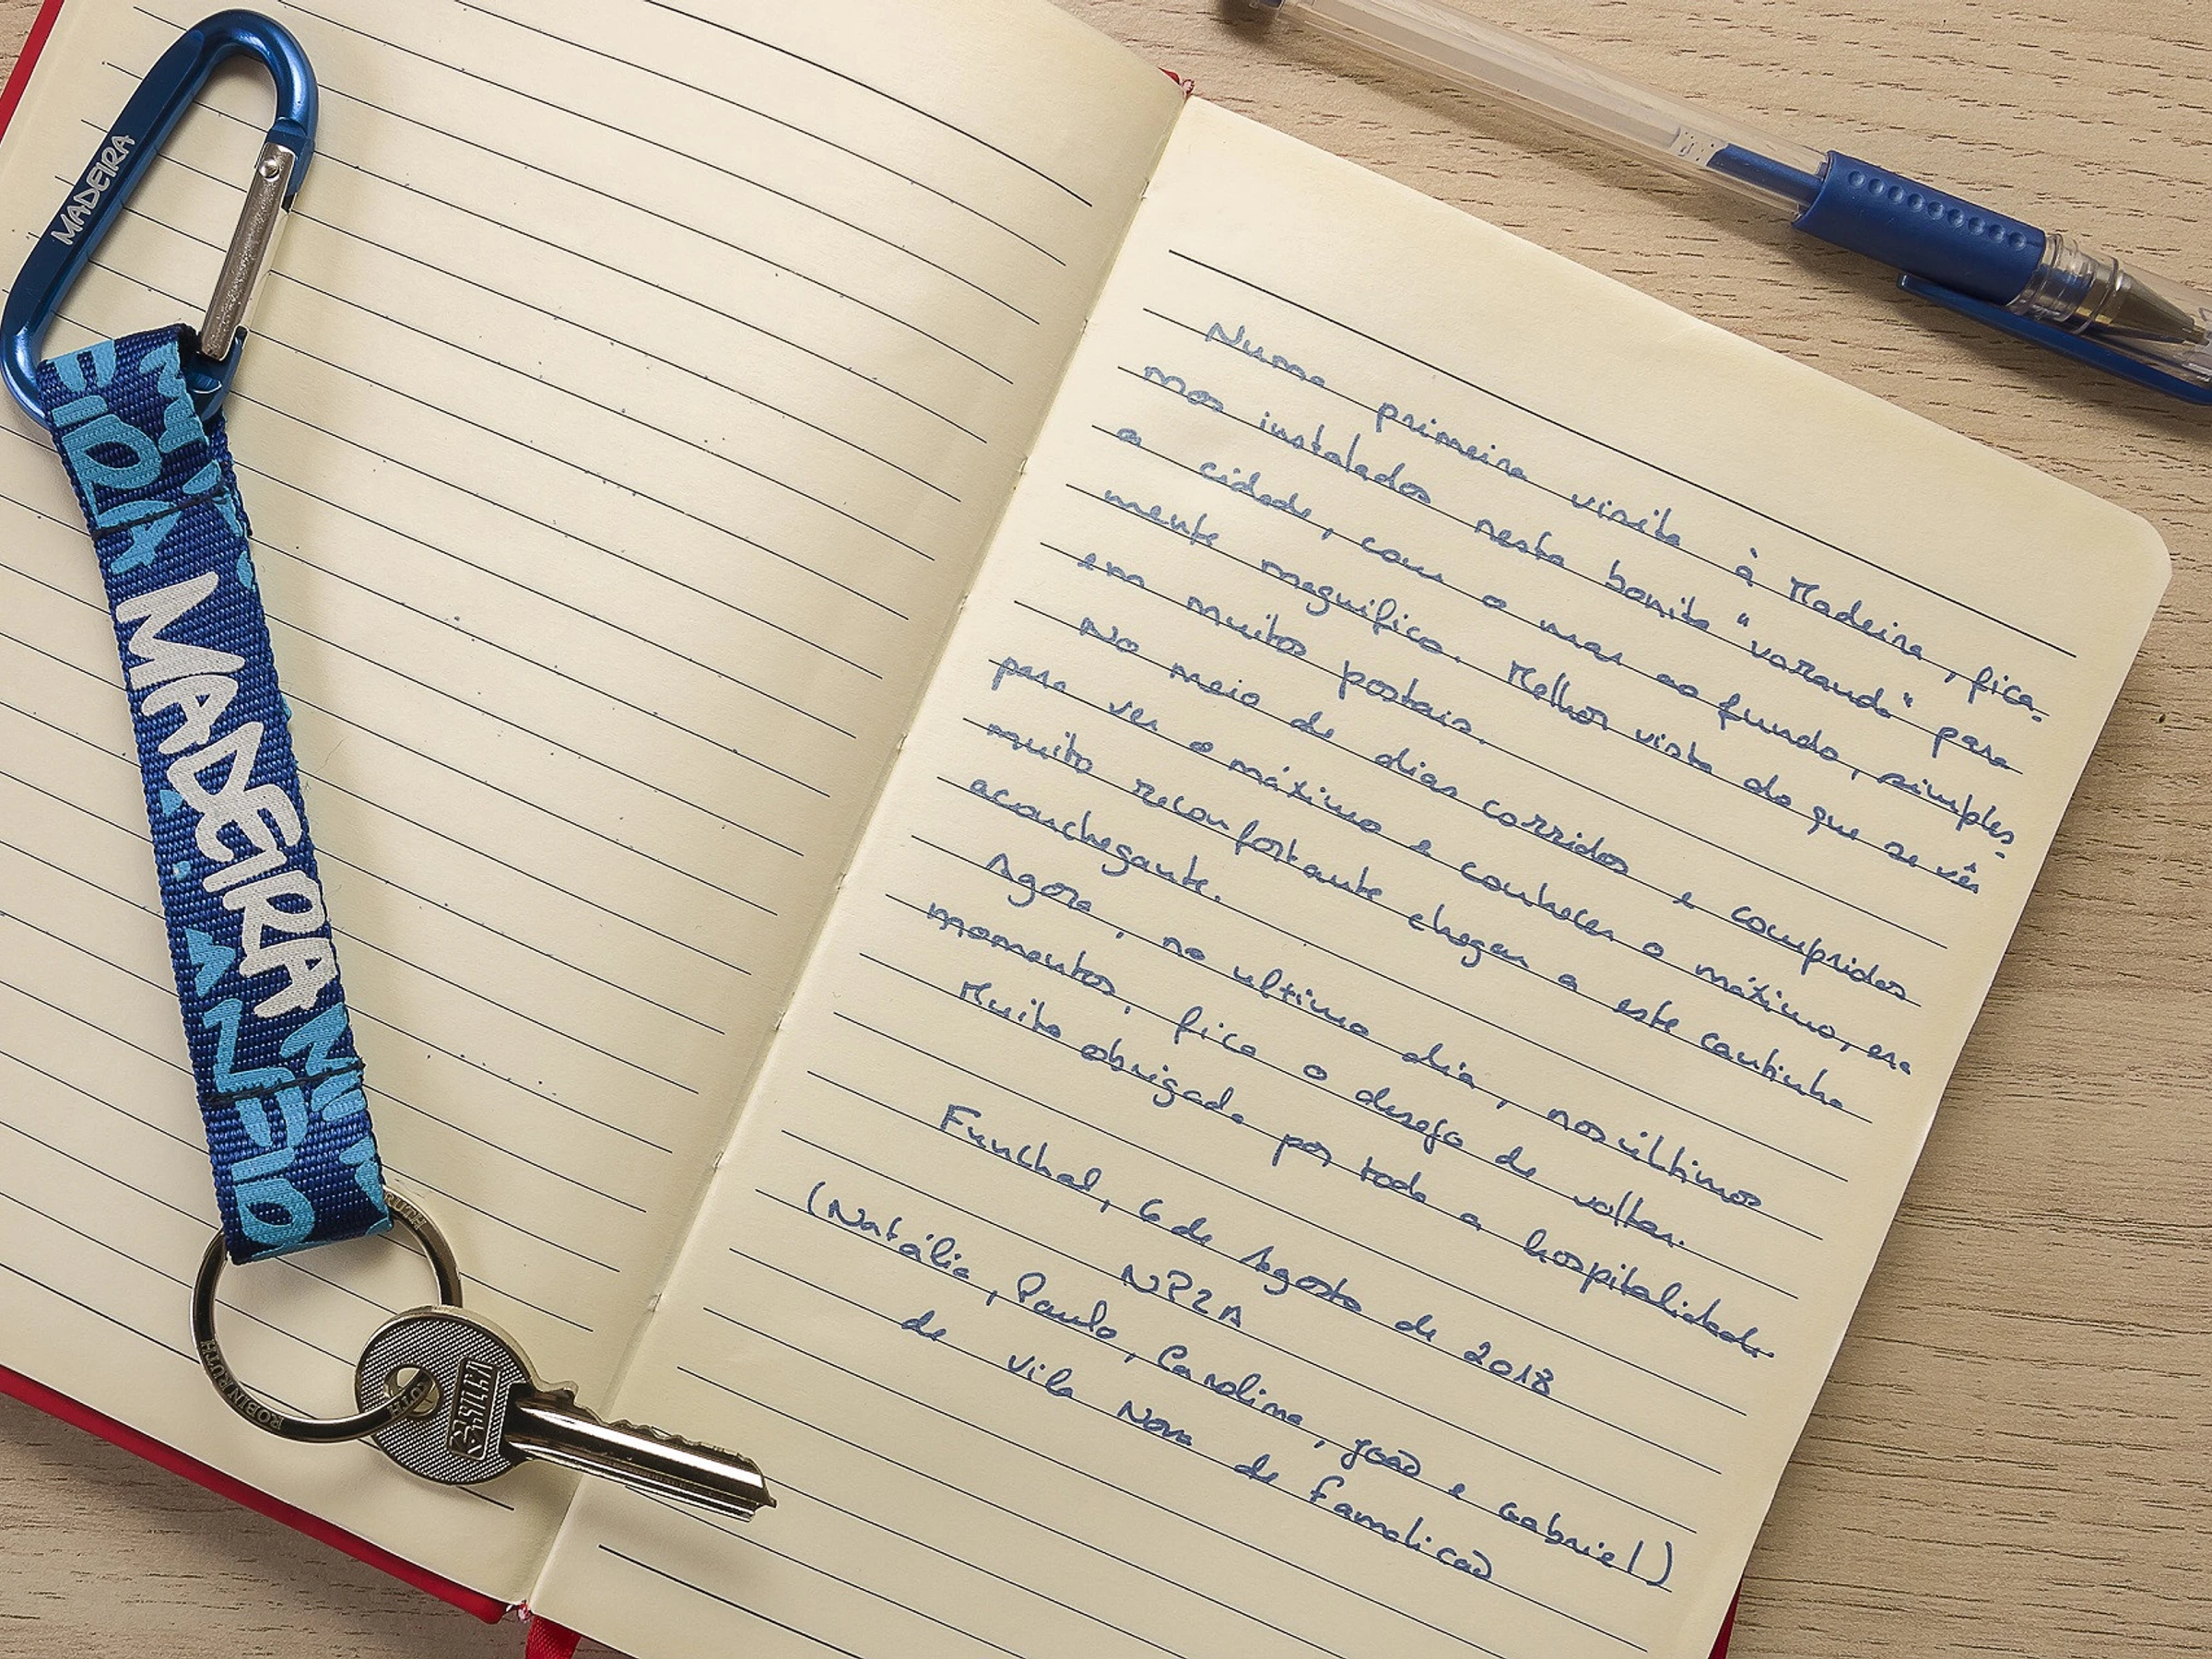 MADEIRA
MADEIRA
ROBIN RUTH
Numa primeira visita à Madeira, fica-
mos instalados nesta bonita "varanda" para
a cidade, com o mar ao fundo, simples-
mente magnífica. Melhor vista do que se vê
em muitos postais.
No meio de dias corridos e compridos
para ver o máximo e conhecer o máximo, era
muito reconfortante chegar a este cantinho
aconchegante.
Agora, no ultimo dia, nos últimos
momentos, fica o desejo de voltar.
Muito obrigada por toda a hospitalidade.
Funchal, 6 de Agosto de 2018
NP2A
(Natália, Paulo, Carolina, João e Gabriel)
de Vila Nova de Famalicão